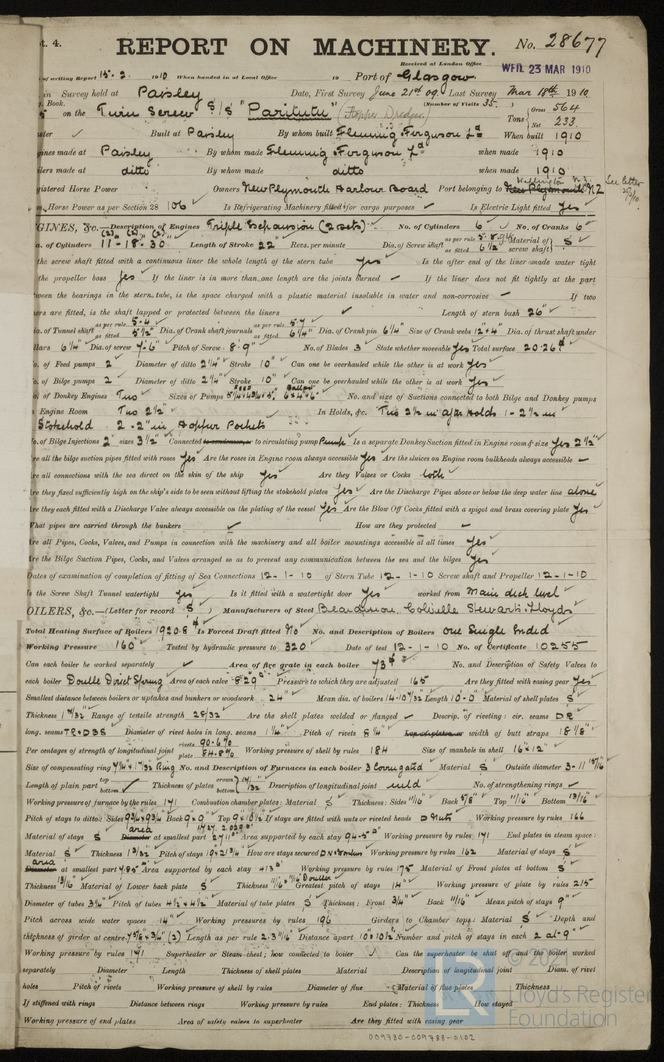 pt. 4. REPORT ON MACHINERY. No. 28677
Received at London Office
of writing Report 15. 2. 1910 When handed in at Local Office 19 Port of Glasgow. WED. 23 MAR 1910
in Survey held at Paisley Date, First Survey June 21st 09. Last Survey Mar 18th 1910
Book. (Number of Visits 35.)
on the Twin Screw S/S "Paritutu" (Hopper Dredger) Tons Gross 564 Net 233
Built at Paisley By whom built Fleming & Ferguson Ld When built 1910
Engines made at Paisley By whom made Fleming & Ferguson Ld when made 1910
Boilers made at ditto By whom made ditto when made 1910
Registered Horse Power Owners New Plymouth Harbour Board Port belonging to New Plymouth N.Z. Wellington N.Z. See letter
Horse Power as per Section 28 106 Is Refrigerating Machinery fitted for cargo purposes Is Electric Light fitted Yes
ENGINES, &c.—Description of Engines Triple Expansion (2 sets) No. of Cylinders 6 No. of Cranks 6
Dia. of Cylinders 11-18-30 Length of Stroke 22" Revs. per minute Dia. of Screw shaft as per rule as fitted 6 1/2" Material of screw shaft S
Is the screw shaft fitted with a continuous liner the whole length of the stern tube Yes Is the after end of the liner made water tight
in the propeller boss Yes If the liner is in more than one length are the joints burned If the liner does not fit tightly at the part
between the bearings in the stern tube, is the space charged with a plastic material insoluble in water and non-corrosive If two
liners are fitted, is the shaft lapped or protected between the liners Length of stern bush 26"
Dia. of Tunnel shaft as per rule 5.4 as fitted 5 1/2" Dia. of Crank shaft journals as per rule 5.7 as fitted 6 1/4" Dia. of Crank pin 6 1/4" Size of Crank webs 12"x4" Dia. of thrust shaft under
collars 6 1/4" Dia. of screw 7-6" Pitch of Screw 8-9" No. of Blades 3 State whether moveable Yes Total surface 20.26
No. of Feed pumps 2 Diameter of ditto 2 1/4" Stroke 10" Can one be overhauled while the other is at work Yes
No. of Bilge pumps 2 Diameter of ditto 2 1/4" Stroke 10" Can one be overhauled while the other is at work Yes
No. of Donkey Engines Two Sizes of Pumps No. and size of Suctions connected to both Bilge and Donkey pumps
In Engine Room Two 2 1/2" In Holds, &c. Two 2 1/2 in after holds 1-2 1/2 in
Stokehold 2-2" in Hopper Pockets
No. of Bilge Injections 2 sizes 3 1/2" Connected to condenser, or to circulating pump Pump Is a separate Donkey Suction fitted in Engine room & size Yes 2 1/2"
Are all the bilge suction pipes fitted with roses Yes Are the roses in Engine room always accessible Yes Are the sluices on Engine room bulkheads always accessible
Are all connections with the sea direct on the skin of the ship Yes Are they Valves or Cocks both
Are they fixed sufficiently high on the ship's side to be seen without lifting the stokehold plates Yes Are the Discharge Pipes above or below the deep water line above
Are they each fitted with a Discharge Valve always accessible on the plating of the vessel Yes Are the Blow Off Cocks fitted with a spigot and brass covering plate Yes
What pipes are carried through the bunkers How are they protected
Are all Pipes, Cocks, Valves, and Pumps in connection with the machinery and all boiler mountings accessible at all times Yes
Are the Bilge Suction Pipes, Cocks, and Valves arranged so as to prevent any communication between the sea and the bilges Yes
Dates of examination of completion of fitting of Sea Connections 12-1-10 of Stern Tube 12-1-10 Screw shaft and Propeller 12-1-10
Is the Screw Shaft Tunnel watertight Yes Is it fitted with a watertight door Yes worked from Main deck level
BOILERS, &c.—(Letter for record S) Manufacturers of Steel Beardmore, Colville Stewarts & Lloyds
Total Heating Surface of Boilers 1920.8 Is Forced Draft fitted No No. and Description of Boilers One Single Ended
Working Pressure 160 Tested by hydraulic pressure to 320 Date of test 12-1-10 No. of Certificate 10255
Can each boiler be worked separately Area of fire grate in each boiler 73 No. and Description of Safety Valves to
each boiler Double Direct Spring Area of each valve 8.29" Pressure to which they are adjusted 165 Are they fitted with easing gear Yes
Smallest distance between boilers or uptakes and bunkers or woodwork 24" Mean dia. of boilers 14-10 7/32 Length 10-0" Material of shell plates S
Thickness 1 7/32 Range of tensile strength 28/32 Are the shell plates welded or flanged Descrip. of riveting: cir. seams DR
long. seams TR & DBS Diameter of rivet holes in long. seams 1 1/4" Pitch of rivets 8 3/4" Lap of plates or width of butt straps 18 7/8"
Per centages of strength of longitudinal joint rivets 90.6% plate 84.8% Working pressure of shell by rules 184 Size of manhole in shell 16"x12"
Size of compensating ring No. and Description of Furnaces in each boiler 3 Corrugated Material S Outside diameter 3-11 13/16"
Length of plain part top bottom Thickness of plates crown bottom 17/32 Description of longitudinal joint weld No. of strengthening rings
Working pressure of furnace by the rules 171 Combustion chamber plates: Material S Thickness: Sides 11/16" Back 5/8" Top 11/16" Bottom 13/16"
Pitch of stays to ditto: Sides Back 9x9" Top If stays are fitted with nuts or riveted heads D Nuts Working pressure by rules 166
Material of stays S area at smallest part Area supported by each stay Working pressure by rules 171 End plates in steam space:
Material S Thickness 1 3/32 Pitch of stays How are stays secured Working pressure by rules 162 Material of stays S
area at smallest part Area supported by each stay 413" Working pressure by rules 175 Material of Front plates at bottom S
Thickness 13/16 Material of Lower back plate S Thickness Greatest pitch of stays 14" Working pressure of plate by rules 215
Diameter of tubes 3 1/4" Pitch of tubes 4 1/2 x 4 1/2 Material of tube plates S Thickness: Front 3/4" Back 11/16" Mean pitch of stays 9"
Pitch across wide water spaces 14" Working pressures by rules 196 Girders to Chamber tops: Material S Depth and
thickness of girder at centre Length as per rule Distance apart Number and pitch of stays in each 2 at 9"
Working pressure by rules 171 Superheater or Steam chest; how connected to boiler Can the superheater be shut off and the boiler worked
separately Diameter Length Thickness of shell plates Material Description of longitudinal joint Diam. of rivet
holes Pitch of rivets Working pressure of shell by rules Diameter of flue Material of flue plates Thickness
If stiffened with rings Distance between rings Working pressure by rules End plates: Thickness How stayed
Working pressure of end plates Area of safety valves to superheater Are they fitted with easing gear
© 202
Lloyd's Register
Foundation
009780-009788-0102